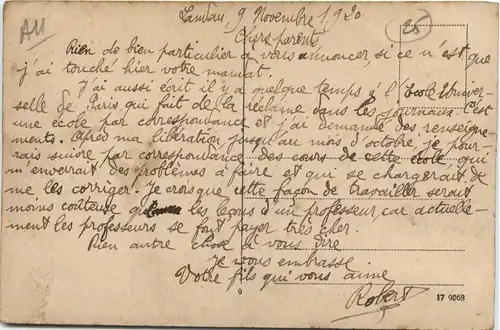 All
Landau, 9 Novembre 1920
25
Chers parents,
Rien de bien particulier à vous annoncer, si ce n'est que
j'ai touché hier votre mandat.
J'ai aussi écrit il y a quelque temps à l'École Univer-
selle de Paris qui fait de la réclame dans les journaux. C'est
une école par correspondance et j'ai demandé des renseigne-
ments. Après ma libération jusqu'au mois d'octobre, je pour-
rais suivre par correspondance des cours de cette école qui
m'enverrait des problèmes à faire et qui se chargerait de
me les corriger. Je crois que cette façon de travailler serait
moins coûteuse que les leçons d'un professeur, car actuelle-
ment les professeurs se font payer très cher.
Rien autre chose à vous dire
Je vous embrasse.
Votre fils qui vous aime
Robert
9
17 9068